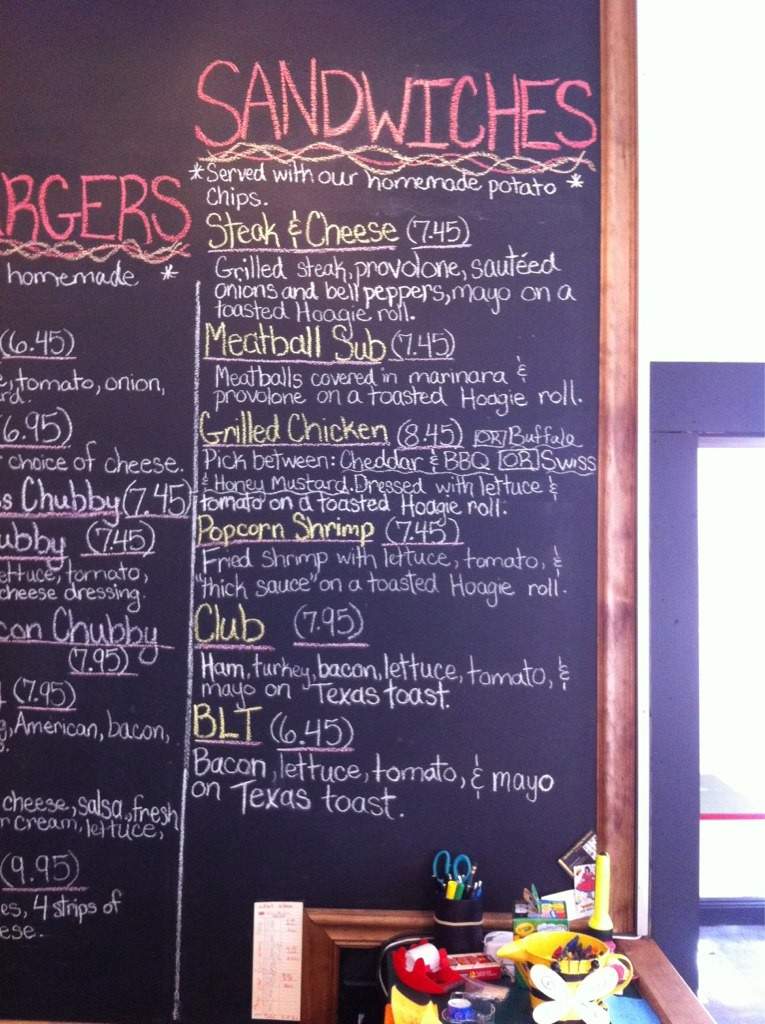 SANDWICHES
*Served with our homemade potato *
chips.
Steak & Cheese (7.45)
Grilled steak, provolone, sautéed
onions and bell peppers, mayo on a
toasted Hoagie roll.
Meatball Sub (7.45)
Meatballs covered in marinara &
provolone on a toasted Hoagie roll.
Grilled Chicken (8.45) OR Buffalo
Pick between: Cheddar & BBQ OR Swiss
& Honey Mustard. Dressed with lettuce &
tomato on a toasted Hoagie roll.
Popcorn Shrimp (7.45)
Fried Shrimp with lettuce, tomato, &
"thick sauce" on a toasted Hoagie roll.
Club (7.95)
Ham, turkey, bacon, lettuce, tomato, &
mayo on Texas toast.
BLT (6.45)
Bacon, lettuce, tomato, & mayo
on Texas toast.
RGERS
homemade *
(6.45)
, tomato, onion,
(6.95)
choice of cheese.
s Chubby (7.45)
ubby (7.45)
ettuce, tomato,
cheese dressing.
con Chubby
(7.95)
(7.95)
, American, bacon,
cheese, salsa, fresh
r cream, lettuce,
(9.95)
es, 4 strips of
ese.